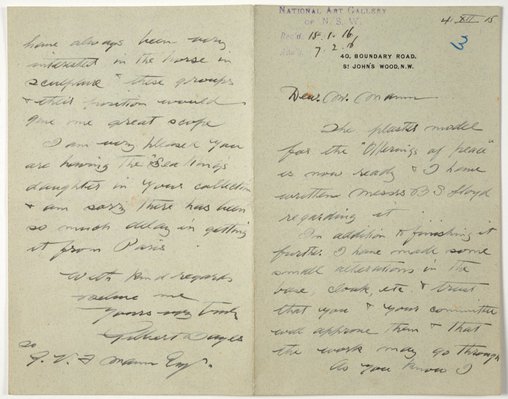 NATIONAL ART GALLERY
OF N.S.W.
Rec'd 18.1.16
7.2.16
4 XII 15
3
40, BOUNDARY ROAD.
ST JOHN'S WOOD, N.W.
Dear Mr. Mann
The plaster model
for the "Offerings of peace"
is now ready & I have
written Messrs B S Lloyd
regarding it
In addition to finishing it
further I have made some
small alterations in the
base, cloak etc & trust
that you & your committee
will approve them & that
the work may go through
As you know I
have always been very
interested in the horse in
sculpture & these groups
& their position would
give me great scope
I am very pleased you
are having the "Sea Kings
daughter in your collection
& am sorry there has been
so much delay in getting
it from Paris
With kind regards
believe me
Yours very truly
Gilbert Bayes
to
G. V. F Mann Esq.